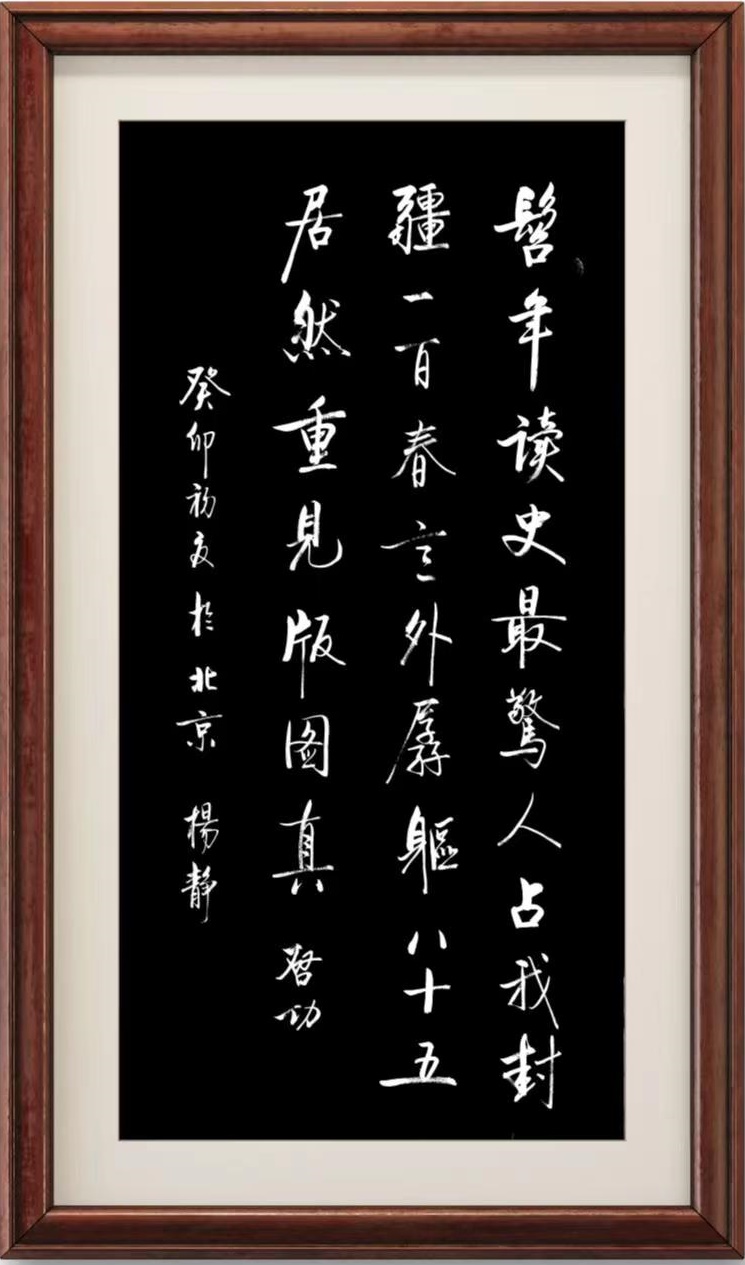 髫年读史最驚人占我封
疆一百春意外孱軀八十五
居然重見版图真 啓功
癸卯初夏於北京 楊静